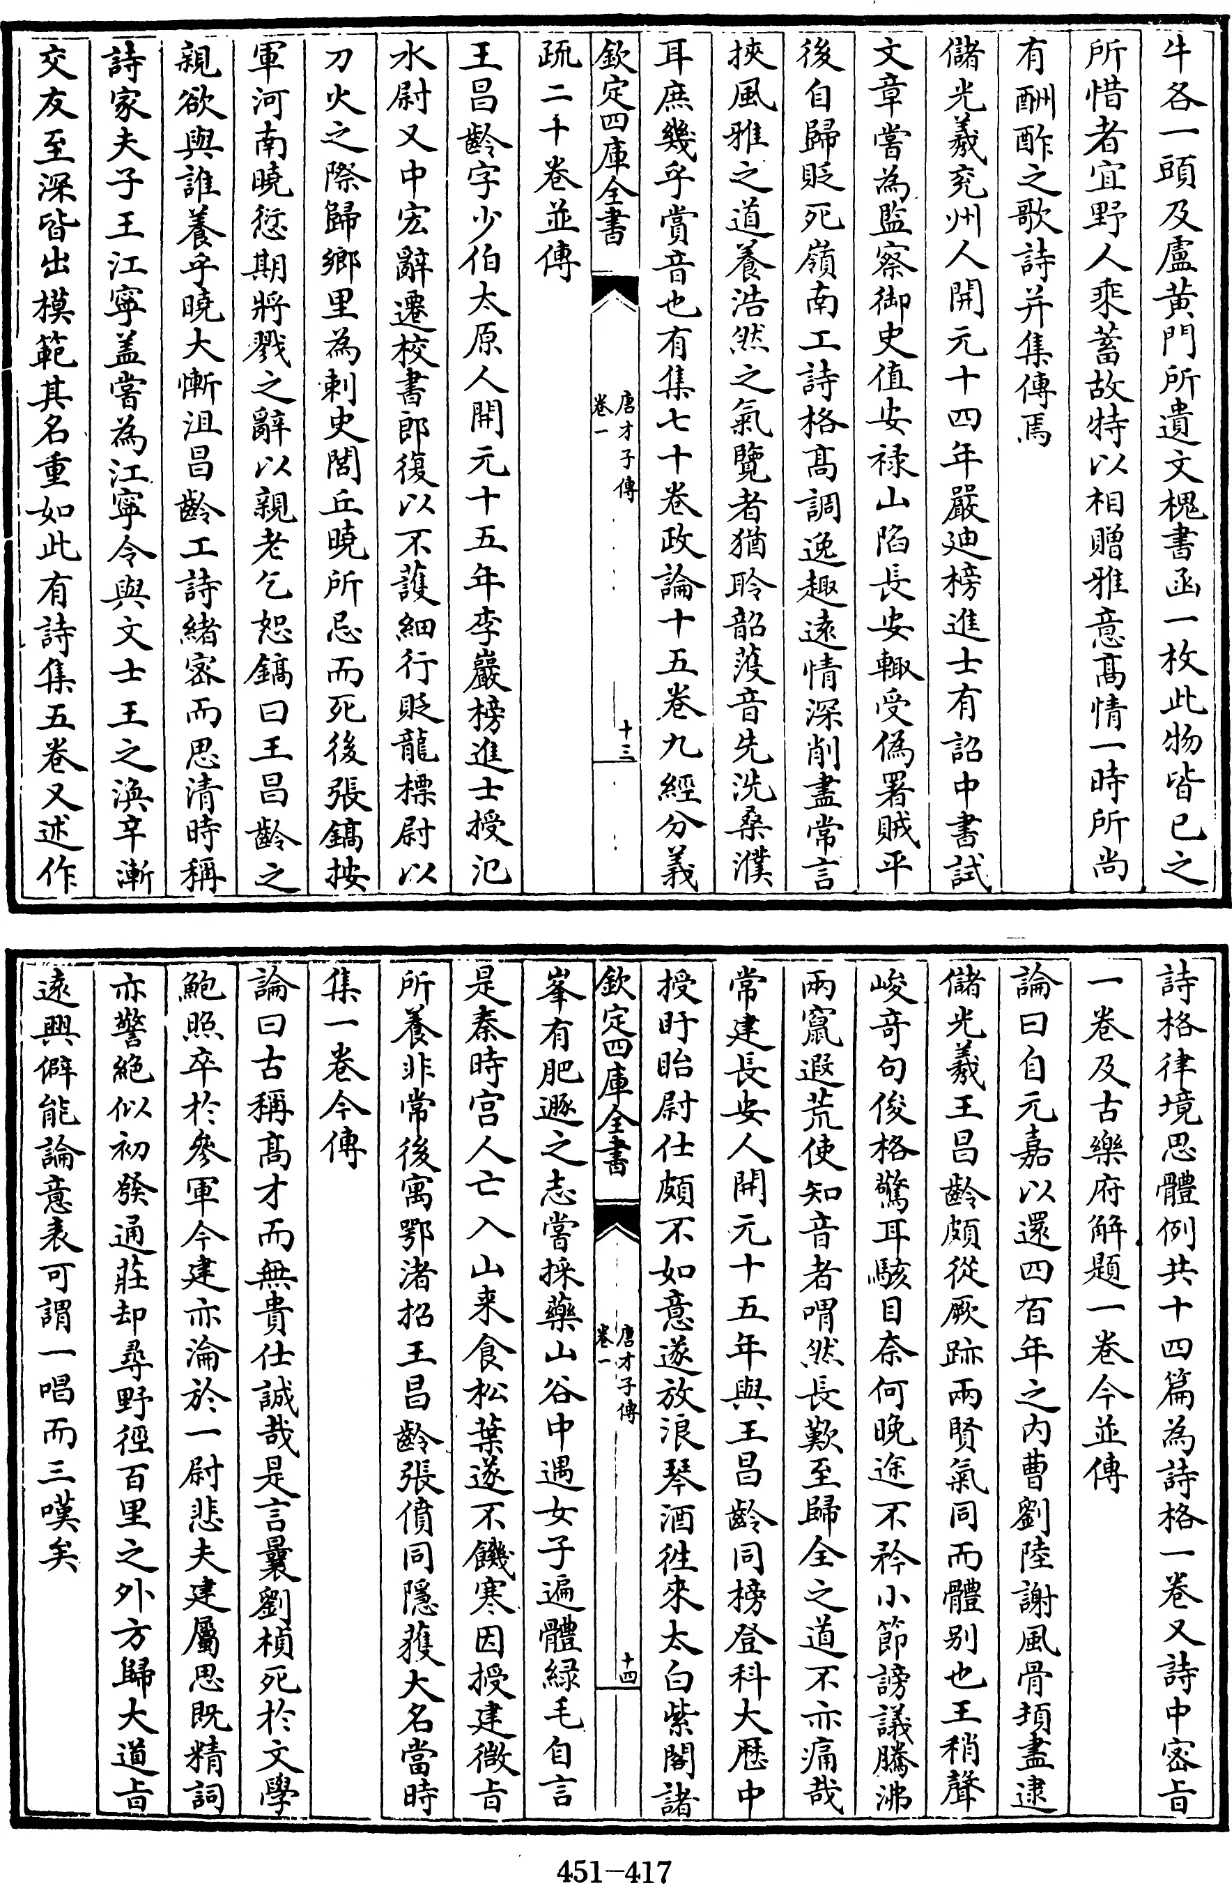 牛各一頭及盧黄門所遺文槐書函一枚此物皆已之
所惜者宜野人乘蓄故特以相贈雅意髙情一時所尚
有酬酢之歌詩并集傳焉
儲光羲兖州人開元十四年嚴廸榜進士有詔中書試
文章嘗為監察御史值安禄山陷長安輙受偽署賊平
後自歸貶死嶺南工詩格髙調逸趣遠情深削盡常言
挾風雅之道養浩然之氣覽者猶聆韶濩音先洗桑濮
耳庶幾乎賞音也有集七十卷政論十五卷九經分義
欽定四庫全書
唐才子傳
卷一
十三
疏二十卷並傳
王昌齡字少伯太原人開元十五年李嶷榜進士授汜
水尉又中宏辭遷校書郎復以不護細行貶龍標尉以
刀火之際歸鄉里為刺史閭丘曉所忌而死後張鎬按
軍河南曉愆期將戮之辭以親老乞恕鎬曰王昌齡之
親欲與誰養乎曉大慚沮昌齡工詩緒宻而思清時稱
詩家夫子王江寧盖嘗為江寧令與文士王之渙辛漸
交友至深皆出模範其名重如此有詩集五卷又述作
詩格律境思體例共十四篇為詩格一卷又詩中宻旨
一卷及古樂府解題一卷今並傳
論曰自元嘉以還四百年之内曹劉陸謝風骨頓盡逮
儲光羲王昌齡頗從厥跡兩賢氣同而體别也王稍聲
峻竒句俊格驚耳駭目奈何晚途不矜小節謗議騰沸
兩竄遐荒使知音者喟然長歎至歸全之道不亦痛哉
常建長安人開元十五年與王昌齡同榜登科大厯中
授盱眙尉仕頗不如意遂放浪琴酒徃來太白紫閣諸
欽定四庫全書
唐才子傳
卷一
十四
峯有肥遯之志嘗採藥山谷中遇女子遍體緑毛自言
是秦時宫人亡入山来食松葉遂不饑寒因授建微旨
所養非常後寓鄂渚招王昌齡張僨同隱獲大名當時
集一卷今傳
論曰古稱髙才而無貴仕誠哉是言曩劉楨死於文學
鮑照卒於參軍今建亦淪於一尉悲夫建屬思既精詞
亦警絶似初發通莊却尋野徑百里之外方歸大道旨
遠興僻能論意表可謂一唱而三嘆矣
451-417